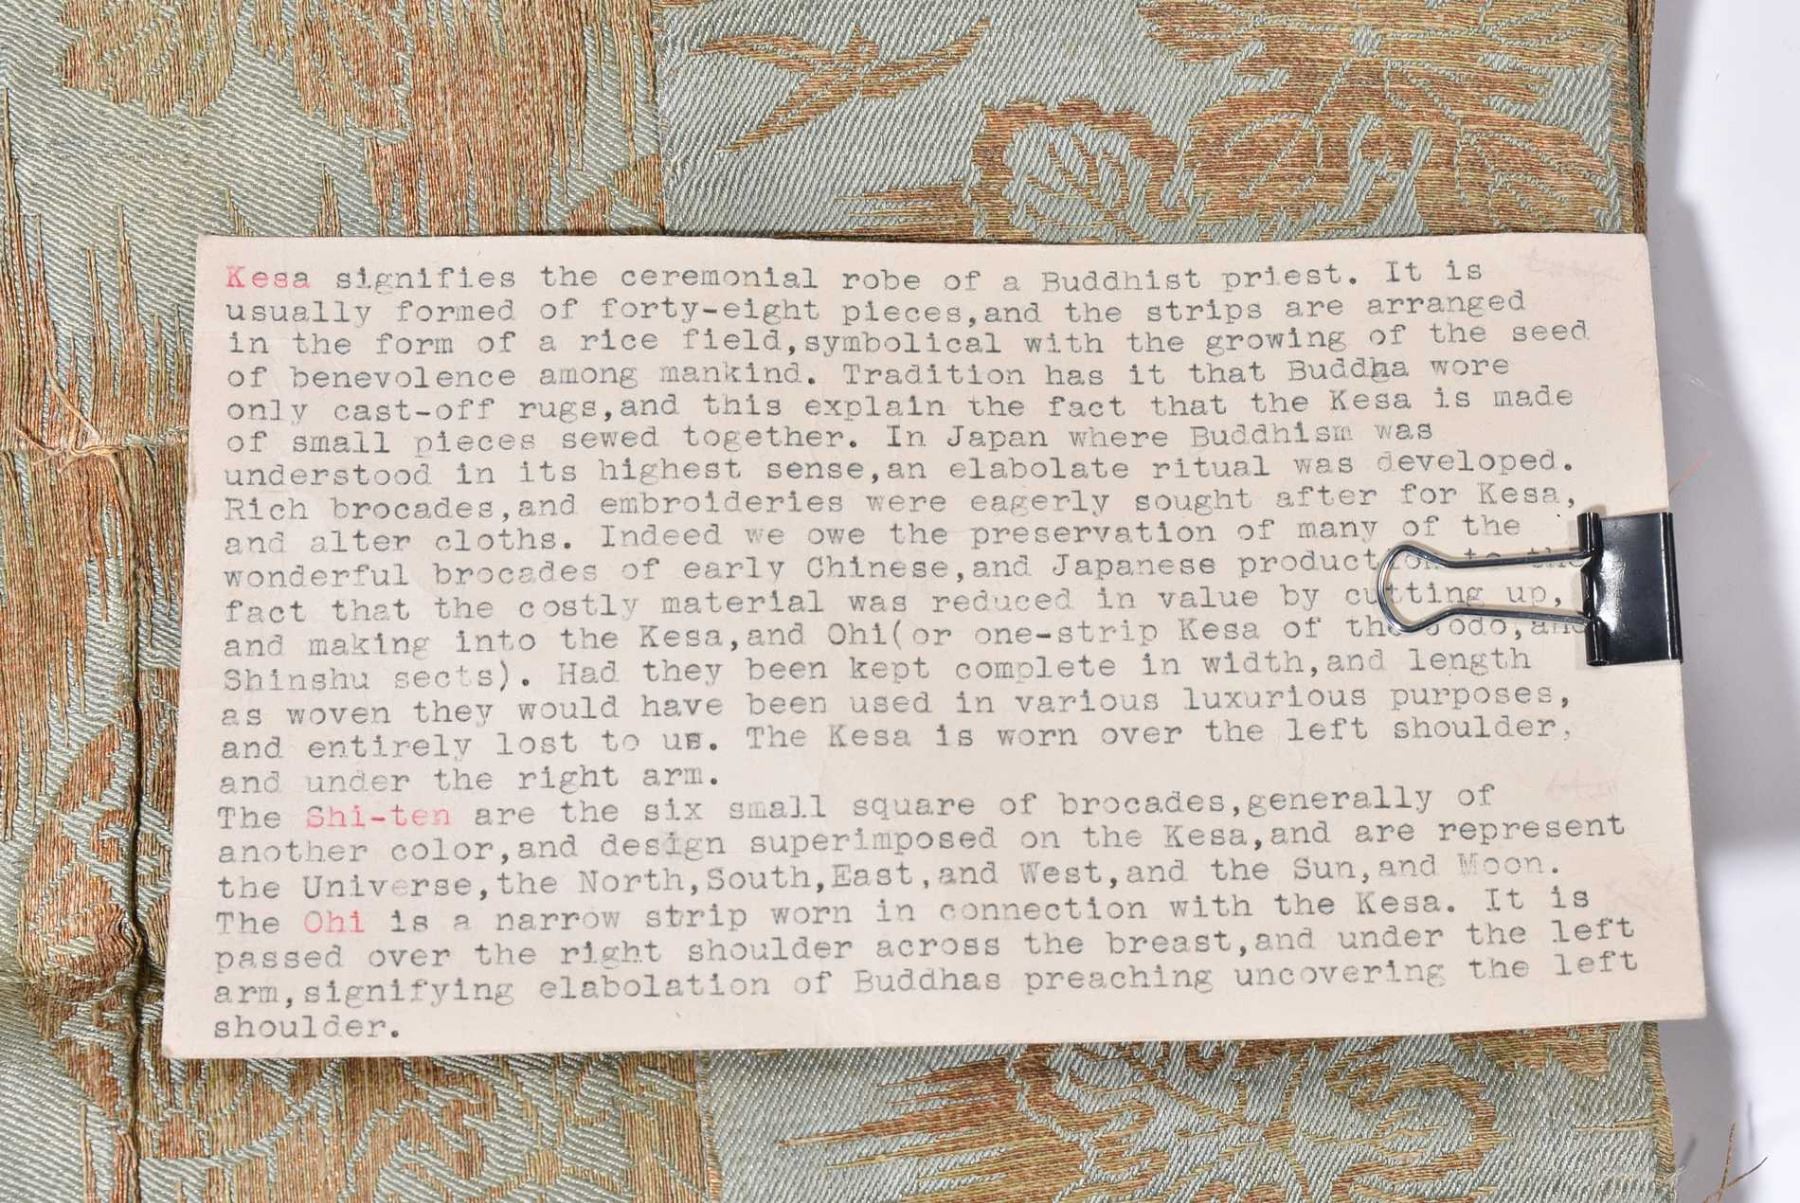 Kesa signifies the ceremonial robe of a Buddhist priest. It is
usually formed of forty-eight pieces,and the strips are arranged
in the form of a rice field,symbolical with the growing of the seed
of benevolence among mankind. Tradition has it that Buddha wore
only cast-off rugs,and this explain the fact that the Kesa is made
of small pieces sewed together. In Japan where Buddhism was
understood in its highest sense,an elabolate ritual was developed.
Rich brocades,and embroideries were eagerly sought after for Kesa,
and alter cloths. Indeed we owe the preservation of many of the
wonderful brocades of early Chinese,and Japanese production to the
fact that the costly material was reduced in value by cutting up,
and making into the Kesa,and Ohi(or one-strip Kesa of the Jodo,and
Shinshu sects). Had they been kept complete in width,and length
as woven they would have been used in various luxurious purposes,
and entirely lost to us. The Kesa is worn over the left shoulder,
and under the right arm.
The Shi-ten are the six small square of brocades,generally of
another color,and design superimposed on the Kesa,and are represent
the Universe,the North,South,East,and West,and the Sun,and Moon.
The Ohi is a narrow strip worn in connection with the Kesa. It is
passed over the right shoulder across the breast,and under the left
arm,signifying elabolation of Buddhas preaching uncovering the left
shoulder.